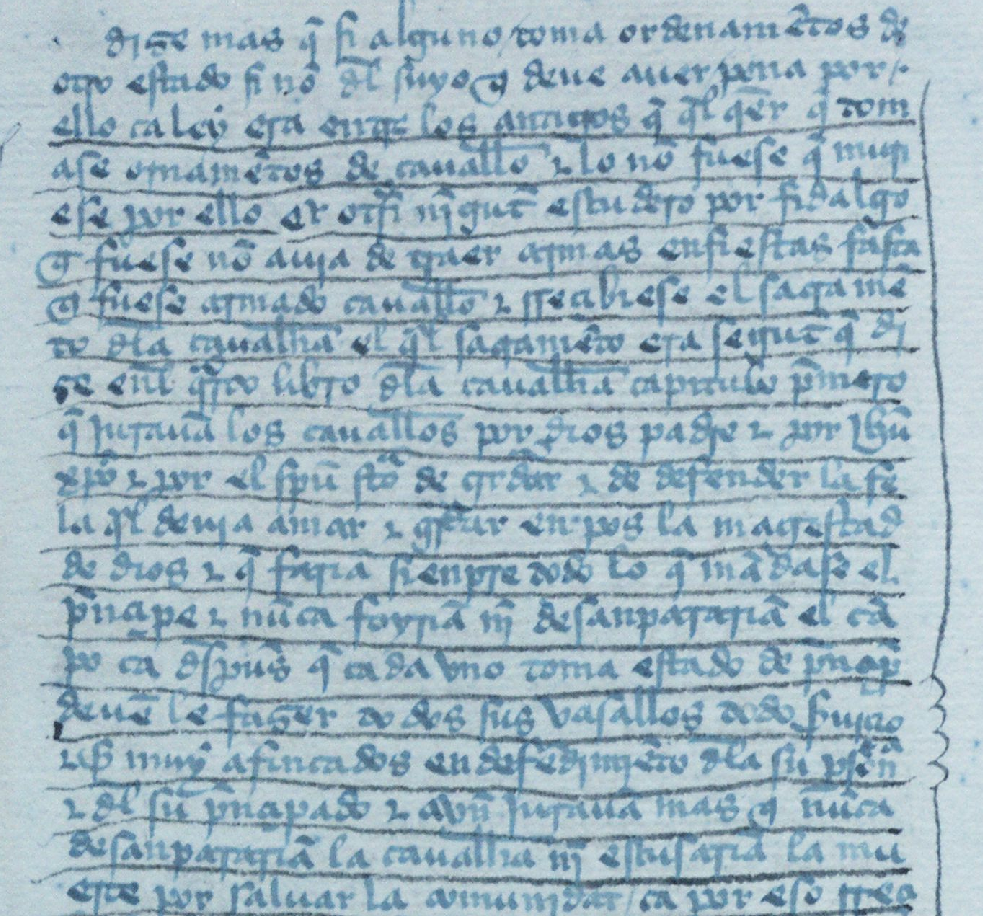 dize mas q̃ si alguno toma ordenamẽtos de
otro estado si nõ dl̃ suyo q̃ deve aver pena por
ello ca ley era entre los antigos q̃ ql̃ qer q̃ tom
ase ornamẽtos de cavallo ⁊ lo nõ fuese q̃ muri
ese por ello et otrsi nĩgut escudero por fidalgo
q̃ fuese nõ avia de traer armas enfiestas fasta
q̃ fuese armado cavallo ⁊ rrecibiese el sacramẽ
to dl̃a cavallia el ql̃ sacramẽto era segut q̃ di
ze enl q̃rto libro dl̃a cavallia capitulo p̃mero
q̃ juravã los cavallos por dios padre ⁊ por Jhũ
xp̃o ⁊ por el spũ sto de grdar ⁊ de defender la fe
la ql̃ devia amar ⁊ grdar en pos la magestad
de dios ⁊ q̃ fariã sienpre dodo lo q̃ mãdase el
p̃ncipe ⁊ nũca foyriã nĩ desãnparariã el cã
po ca dspus q̃ cada vno toma estado de p̃ncip̃
devẽ le fazer dodos sus vasallos dodo s̃uicio
⁊ s̃ muy afincados en defẽdimiẽto dl̃a su p̃sona
⁊ dl̃ su p̃ncipado ⁊ avn juravã mas q̃ nũca
desãnpararia la cavallia nĩ escusariã la mu
erte por saluar la comunidat ca por eso rrec